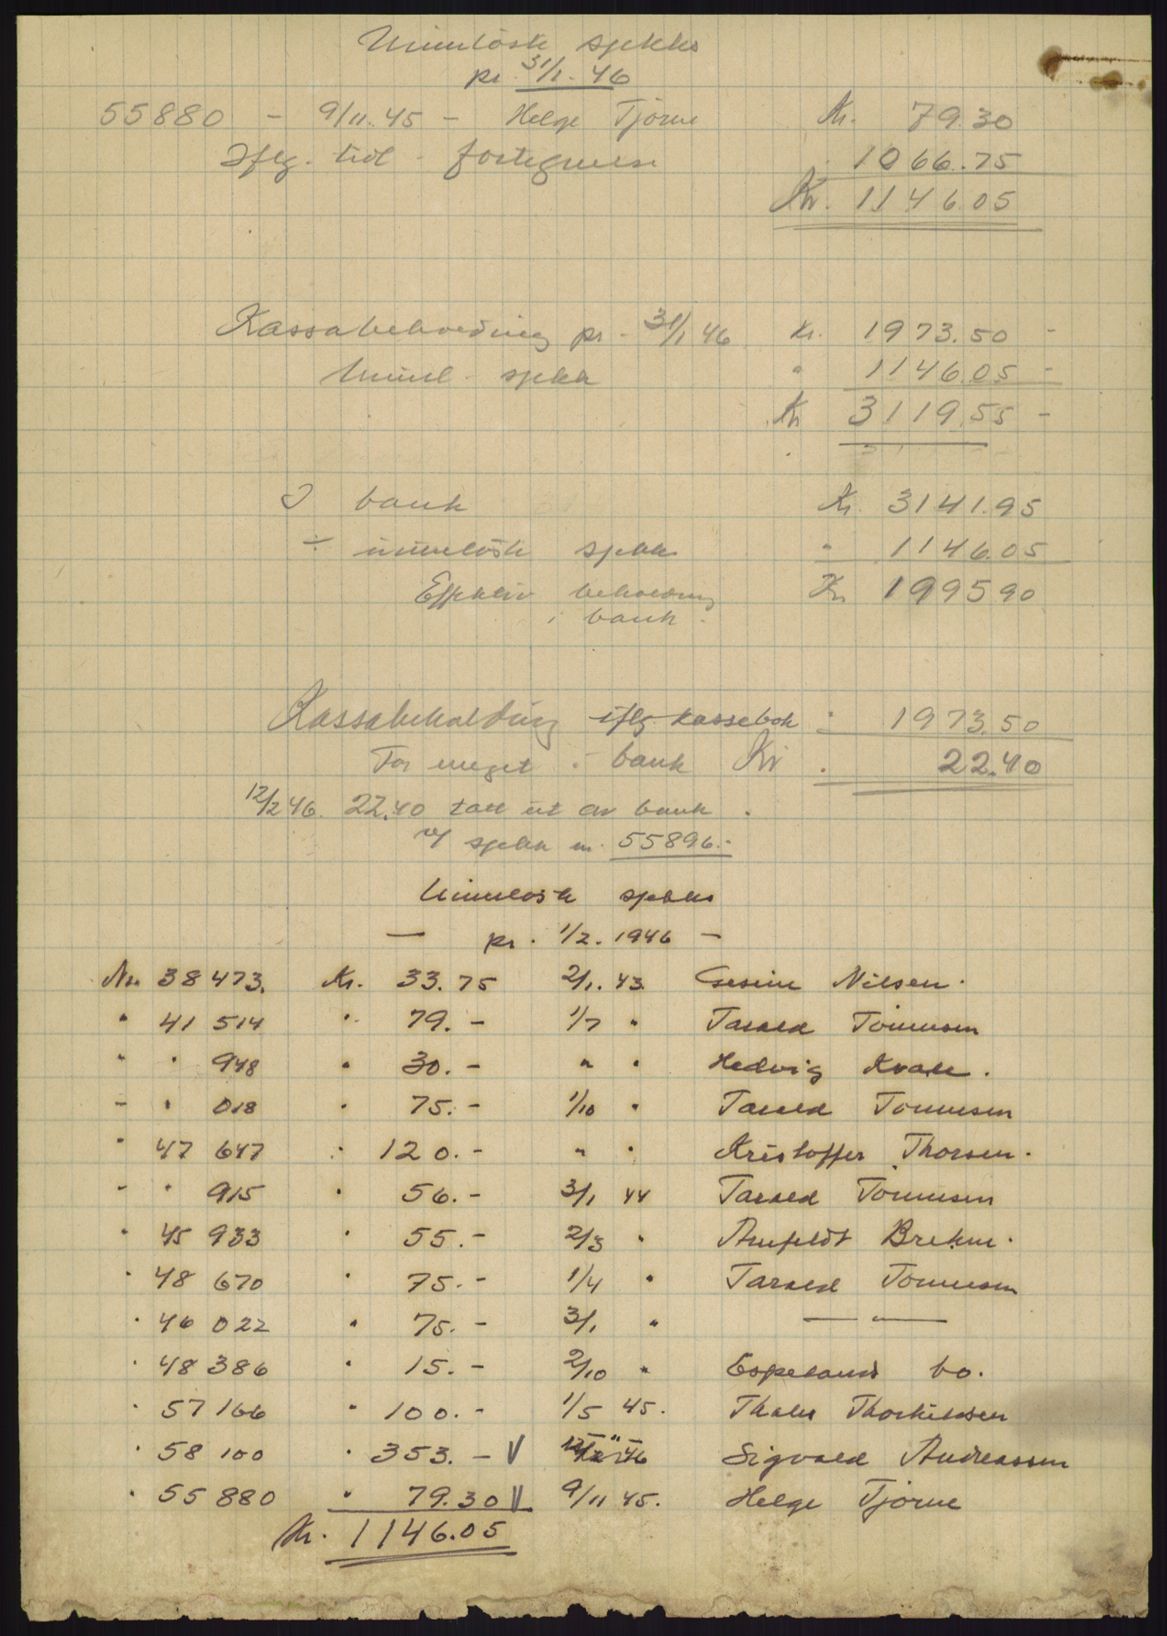 Uinnløste sjekks
pr. 31/1. 46
55880 - 9/11. 45 - Helge Tjörne Kr. 79.30
Iflg. tidl. fortegnelse 1066.75
Kr. 1146.05
Kassabeholdning pr. 31/1 46 Kr. 1973.50 -
Uinnl. sjekk " 1146.05 -
Kr 3119.55 -
I bank Kr. 3141.95
÷ uinnelöste sjekks " 1146.05
Effektiv beholdning Kr 1995 90
i bank.
Kassabeholdning iflg kassebok : 1973.50
For meget i bank Kr. 22.40
12/2 46. 22.40 tatt ut av bank.
v/ sjekk nr. 55896.-
Uinnelöste sjekks
— pr. 1/2. 1946 —
Nr. 38 473. Kr. 33.75 2/1. 43. Gesine Nilsen.
" 41 514 " 79.- 1/7 " Tarald Tönnesen
" " 948 " 30.- " " Hedvig Kvale.
" " 018 " 75.- 1/10 " Tarald Tönnesen
" 47 647 " 120.- " " Kristoffer Thorsen.
" " 915 " 56.- 3/1 44 Tarald Tönnesen
" 45 933 " 55.- 2/3 " Arnfeldt Brekne.
" 48 670 " 75.- 1/4 " Tarald Tönnesen
" 46 022 " 75.- 3/1 " — " —
" 48 386 " 15.- 2/10 " Espelands bo.
" 57 166 " 100.- 1/5 45. Thales Thorkildsen
" 58 100 " 353.- V 46 Sigvald Andreassen
" 55 880 " 79.30 V 9/11 45. Helge Tjörne
Kr. 1146.05